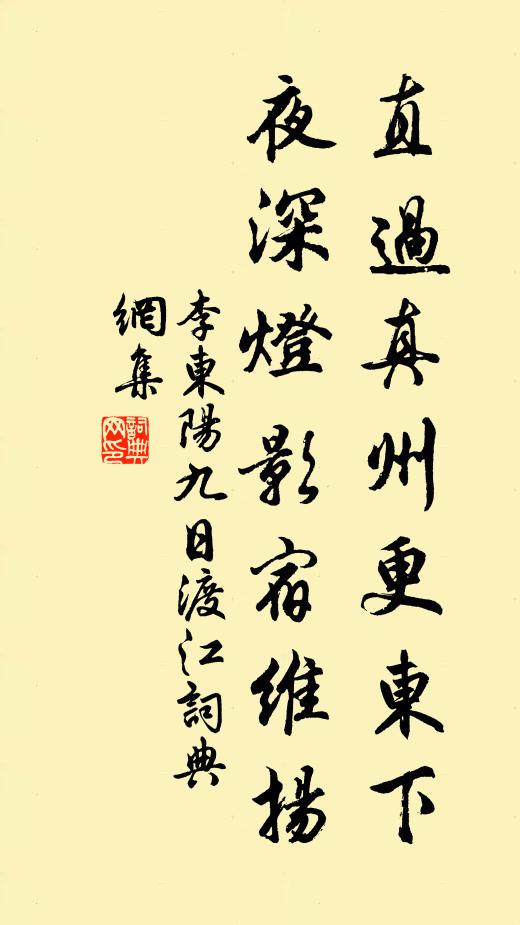 直過真州更東下
夜深燈影宿維揚
李東陽九日渡江詞典
網集
詞典
网印